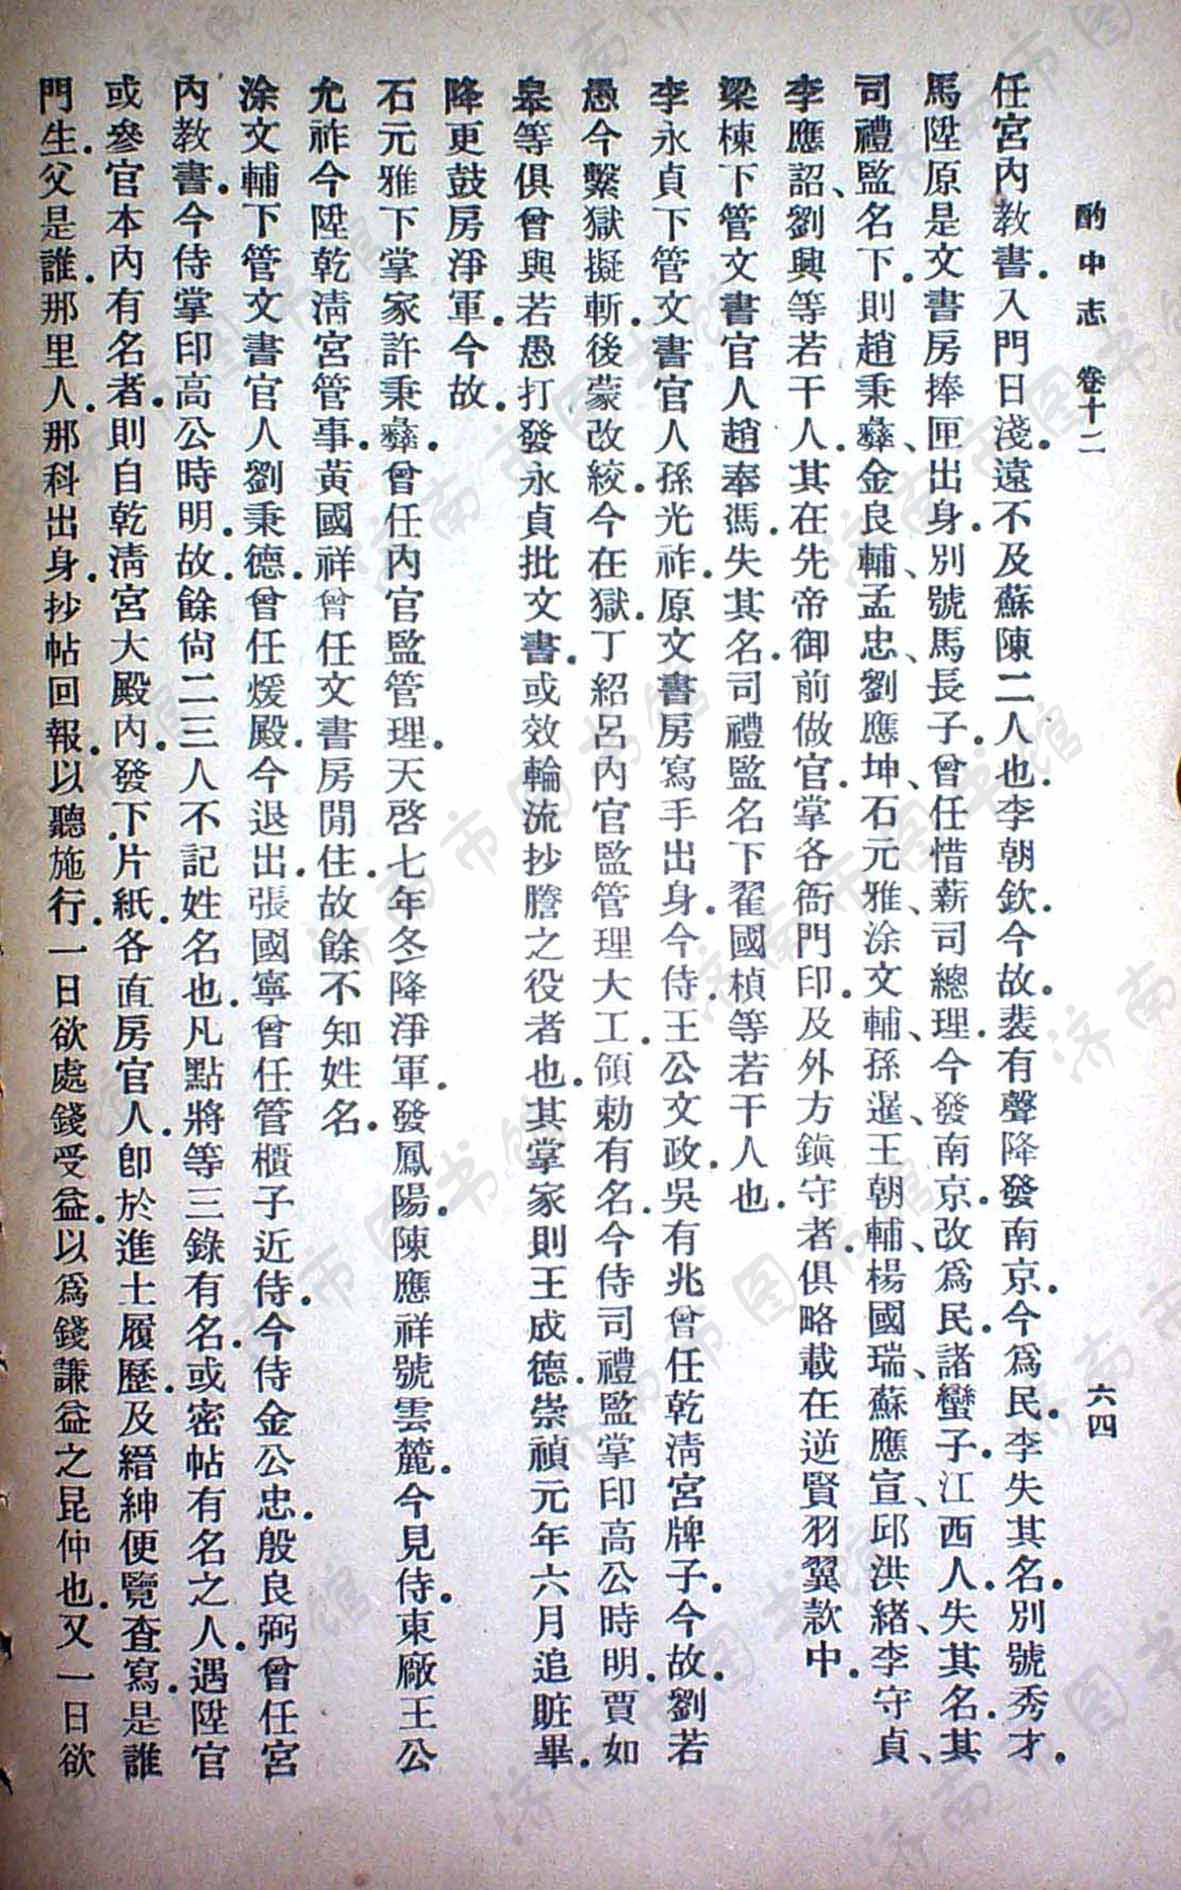 酌中志　卷十二　六四
任宮內教書．入門日淺．遠不及蘇陳二人也．李朝欽．今故．裴有聲降發南京．今爲民．李失其名．別號秀才．
馬陞原是文書房捧匣出身．別號馬長子．曾任惜薪司總理．今發南京．改爲民．諸蠻子．江西人．失其名．其
司禮監名下．則趙秉彝、金良輔、孟忠、劉應坤、石元雅、涂文輔、孫暹、王朝輔、楊國瑞、蘇應宣、邱洪緒、李守貞、
李應詔、劉興等若干人．其在先帝御前做官．掌各衙門印．及外方鎮守者．俱略載在逆賢羽翼款中．
梁棟下管文書官人趙奉馮．失其名．司禮監名下翟國楨等若干人也．
李永貞下管文書官人孫光祚．原文書房寫手出身．今侍王公文政．吳有兆曾任乾淸宮牌子．今故．劉若
愚今繫獄擬斬．後蒙改絞．今在獄．丁紹呂內官監管理大工．領勅有名．今侍司禮監掌印高公時明．賈如
皋等俱曾與若愚打發永貞批文書．或效輪流抄謄之役者也．其掌家則王成德．崇禎元年六月追贓畢．
降更鼓房淨軍．今故．
石元雅下掌家許秉彝．曾任內官監管理．天啓七年冬降淨軍．發鳳陽．陳應祥號雲麓．今見侍東廠王公
允祚今陞乾淸宮管事．黃國祥曾任文書房閒住．故餘不知姓名．
涂文輔下管文書官人劉秉德．曾任煖殿．今退出．張國寧曾任管櫃子近侍．今侍金公忠．殷良弼曾任宮
內教書．今侍掌印高公時明．故．餘尙二三人不記姓名也．凡點將等三錄有名．或密帖有名之人．遇陞官
或參官本內有名者．則自乾淸宮大殿內．發下片紙．各直房官人．卽於進士履歷．及縉紳便覽查寫．是誰
門生．父是誰．那里人．那科出身．抄帖回報．以聽施行．一日欲處錢受益．以爲錢謙益之昆仲也．又一日欲